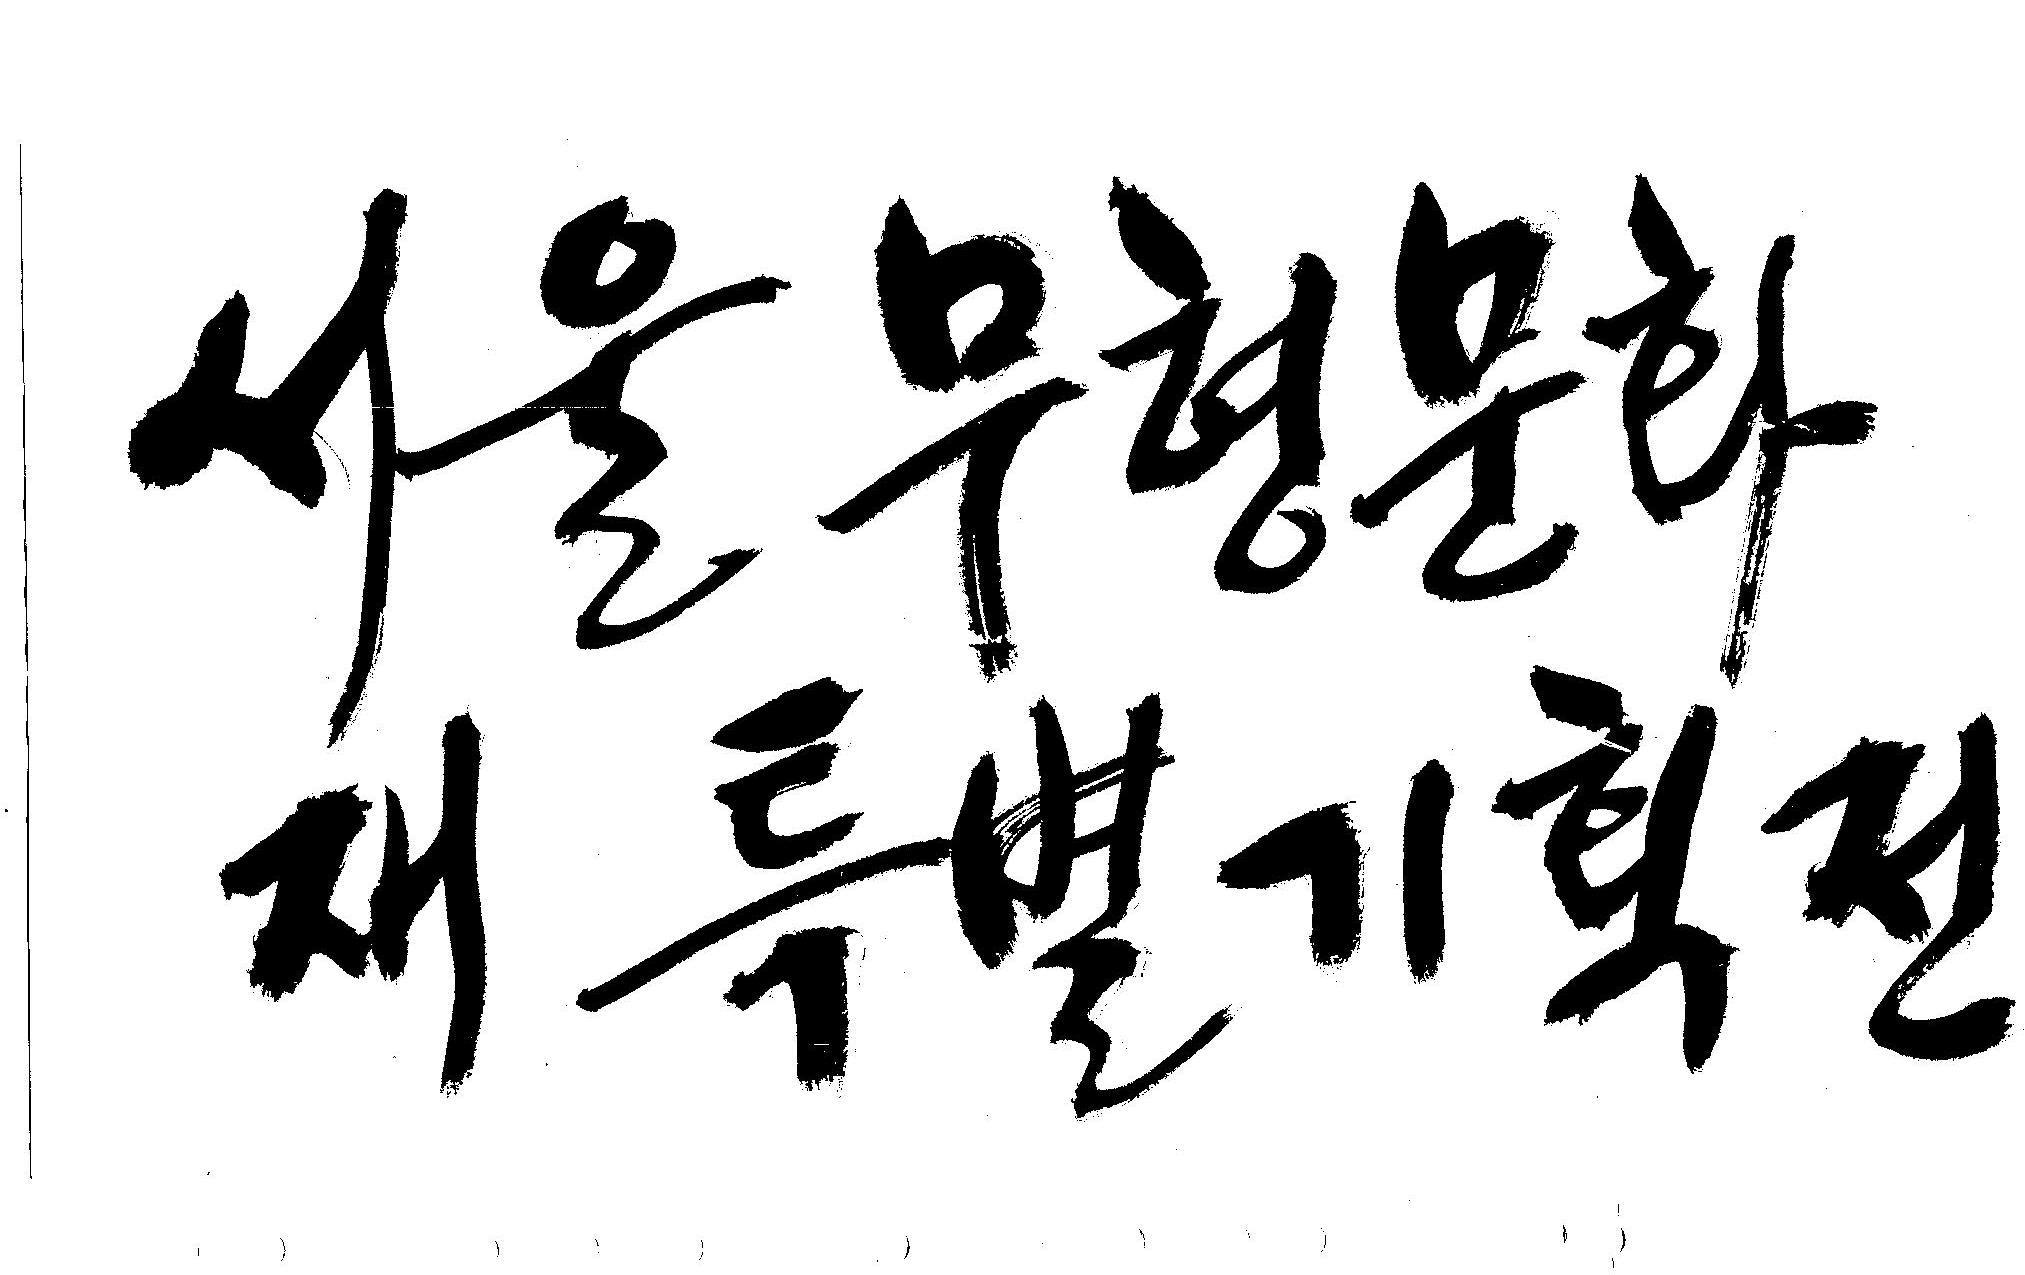 서울 무형문화
재 특별기획전